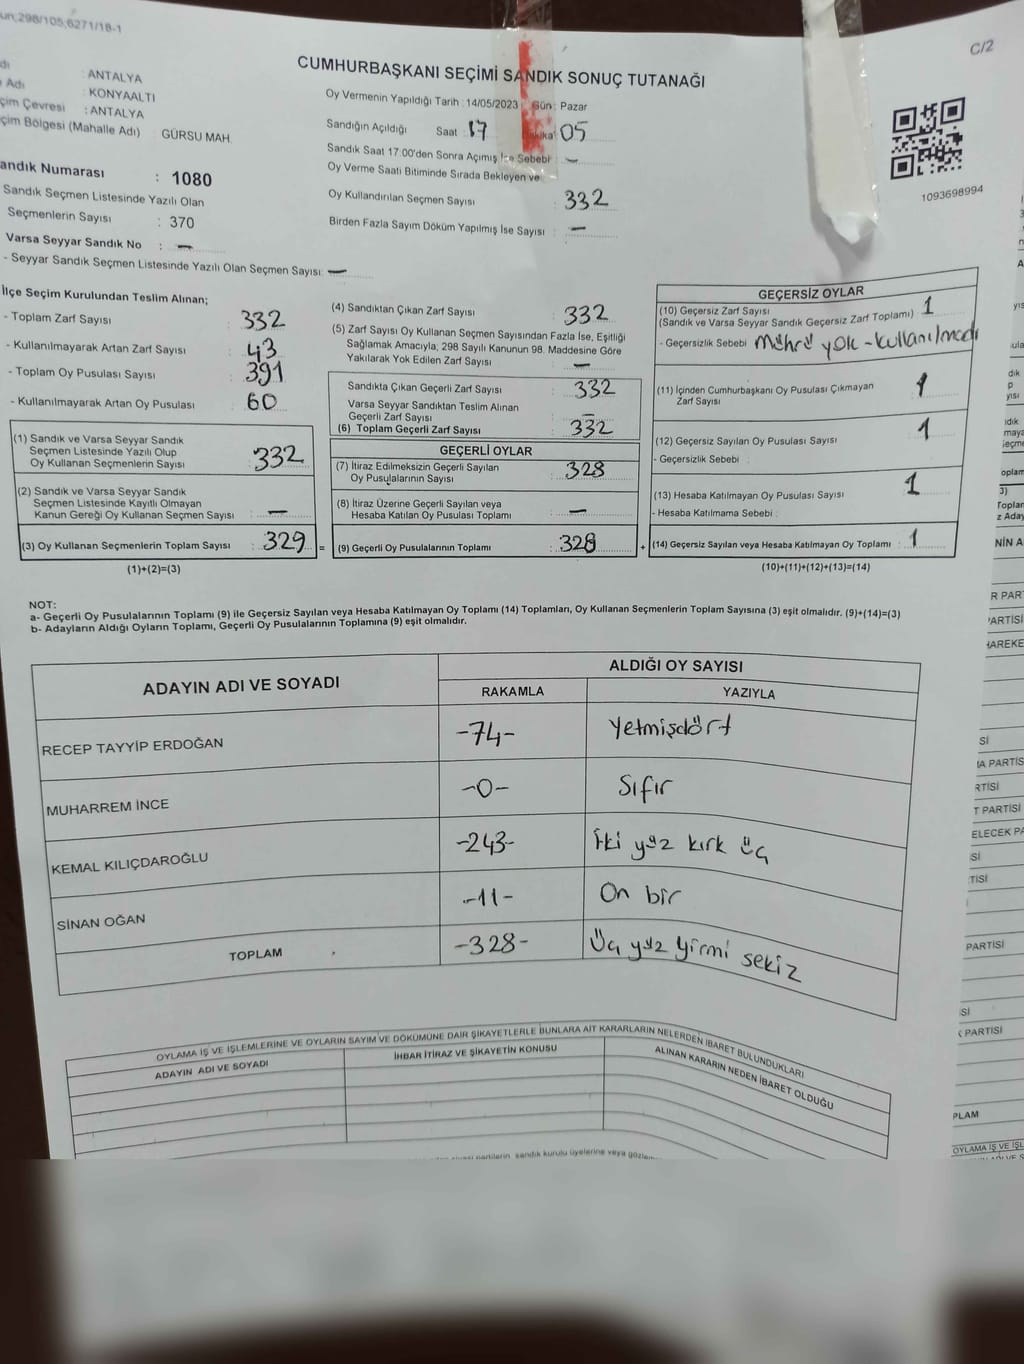 298/105,6271/18-1
C/2
CUMHURBAŞKANI SEÇİMİ SANDIK SONUÇ TUTANAĞI
: ANTALYA
Adı : KONYAALTI
Seçim Çevresi : ANTALYA
Seçim Bölgesi (Mahalle Adı) : GÜRSU MAH.
Sandık Numarası : 1080
Sandık Seçmen Listesinde Yazılı Olan
Seçmenlerin Sayısı : 370
Varsa Seyyar Sandık No : —
- Seyyar Sandık Seçmen Listesinde Yazılı Olan Seçmen Sayısı: —
Oy Vermenin Yapıldığı Tarih : 14/05/2023 Gün : Pazar
Sandığın Açıldığı Saat : 17 Dakika: 05
Sandık Saat 17:00'den Sonra Açımış İse Sebebi : —
Oy Verme Saati Bitiminde Sırada Bekleyen ve
Oy Kullandırılan Seçmen Sayısı : 332
Birden Fazla Sayım Döküm Yapılmış İse Sayısı : —
1093698994
İlçe Seçim Kurulundan Teslim Alınan;
- Toplam Zarf Sayısı : 332
- Kullanılmayarak Artan Zarf Sayısı : 43
- Toplam Oy Pusulası Sayısı : 391
- Kullanılmayarak Artan Oy Pusulası : 60
(1) Sandık ve Varsa Seyyar Sandık
Seçmen Listesinde Yazılı Olup
Oy Kullanan Seçmenlerin Sayısı : 332
(2) Sandık ve Varsa Seyyar Sandık
Seçmen Listesinde Kayıtlı Olmayan
Kanun Gereği Oy Kullanan Seçmen Sayısı : —
(3) Oy Kullanan Seçmenlerin Toplam Sayısı : 329 =
(1)+(2)=(3)
(4) Sandıktan Çıkan Zarf Sayısı : 332
(5) Zarf Sayısı Oy Kullanan Seçmen Sayısından Fazla İse, Eşitliği
Sağlamak Amacıyla, 298 Sayılı Kanunun 98. Maddesine Göre
Yakılarak Yok Edilen Zarf Sayısı : —
Sandıkta Çıkan Geçerli Zarf Sayısı : 332
Varsa Seyyar Sandıktan Teslim Alınan
Geçerli Zarf Sayısı : —
(6) Toplam Geçerli Zarf Sayısı : 332
GEÇERLİ OYLAR
(7) İtiraz Edilmeksizin Geçerli Sayılan
Oy Pusulalarının Sayısı : 328
(8) İtiraz Üzerine Geçerli Sayılan veya
Hesaba Katılan Oy Pusulası Toplamı : —
(9) Geçerli Oy Pusulalarının Toplamı : 328 +
GEÇERSİZ OYLAR
(10) Geçersiz Zarf Sayısı
(Sandık ve Varsa Seyyar Sandık Geçersiz Zarf Toplamı) : 1
- Geçersizlik Sebebi : Mührü yok - kullanılmadı
(11) İçinden Cumhurbaşkanı Oy Pusulası Çıkmayan
Zarf Sayısı : 1
(12) Geçersiz Sayılan Oy Pusulası Sayısı : 1
- Geçersizlik Sebebi :
(13) Hesaba Katılmayan Oy Pusulası Sayısı : 1
- Hesaba Katılmama Sebebi :
(14) Geçersiz Sayılan veya Hesaba Katılmayan Oy Toplamı : 1
(10)+(11)+(12)+(13)=(14)
NOT:
a- Geçerli Oy Pusulalarının Toplamı (9) ile Geçersiz Sayılan veya Hesaba Katılmayan Oy Toplamı (14) Toplamları, Oy Kullanan Seçmenlerin Toplam Sayısına (3) eşit olmalıdır. (9)+(14)=(3)
b- Adayların Aldığı Oyların Toplamı, Geçerli Oy Pusulalarının Toplamına (9) eşit olmalıdır.
ADAYIN ADI VE SOYADI
ALDIĞI OY SAYISI
RAKAMLA YAZIYLA
RECEP TAYYİP ERDOĞAN -74- Yetmişdört
MUHARREM İNCE -0- Sıfır
KEMAL KILIÇDAROĞLU -243- İki yüz kırk üç
SİNAN OĞAN -11- On bir
TOPLAM -328- Üç yüz yirmi sekiz
OYLAMA İŞ VE İŞLEMLERİNE VE OYLARIN SAYIM VE DÖKÜMÜNE DAİR ŞİKAYETLERLE BUNLARA AİT KARARLARIN NELERDEN İBARET BULUNDUKLARI
ADAYIN ADI VE SOYADI
İHBAR İTİRAZ VE ŞİKAYETİN KONUSU
ALINAN KARARIN NEDEN İBARET OLDUĞU
partilerin sandık kurulu üyelerine veya
PARTİSİ
PARTİSİ
PARTİSİ
PARTİSİ
OYLAMA İŞ VE